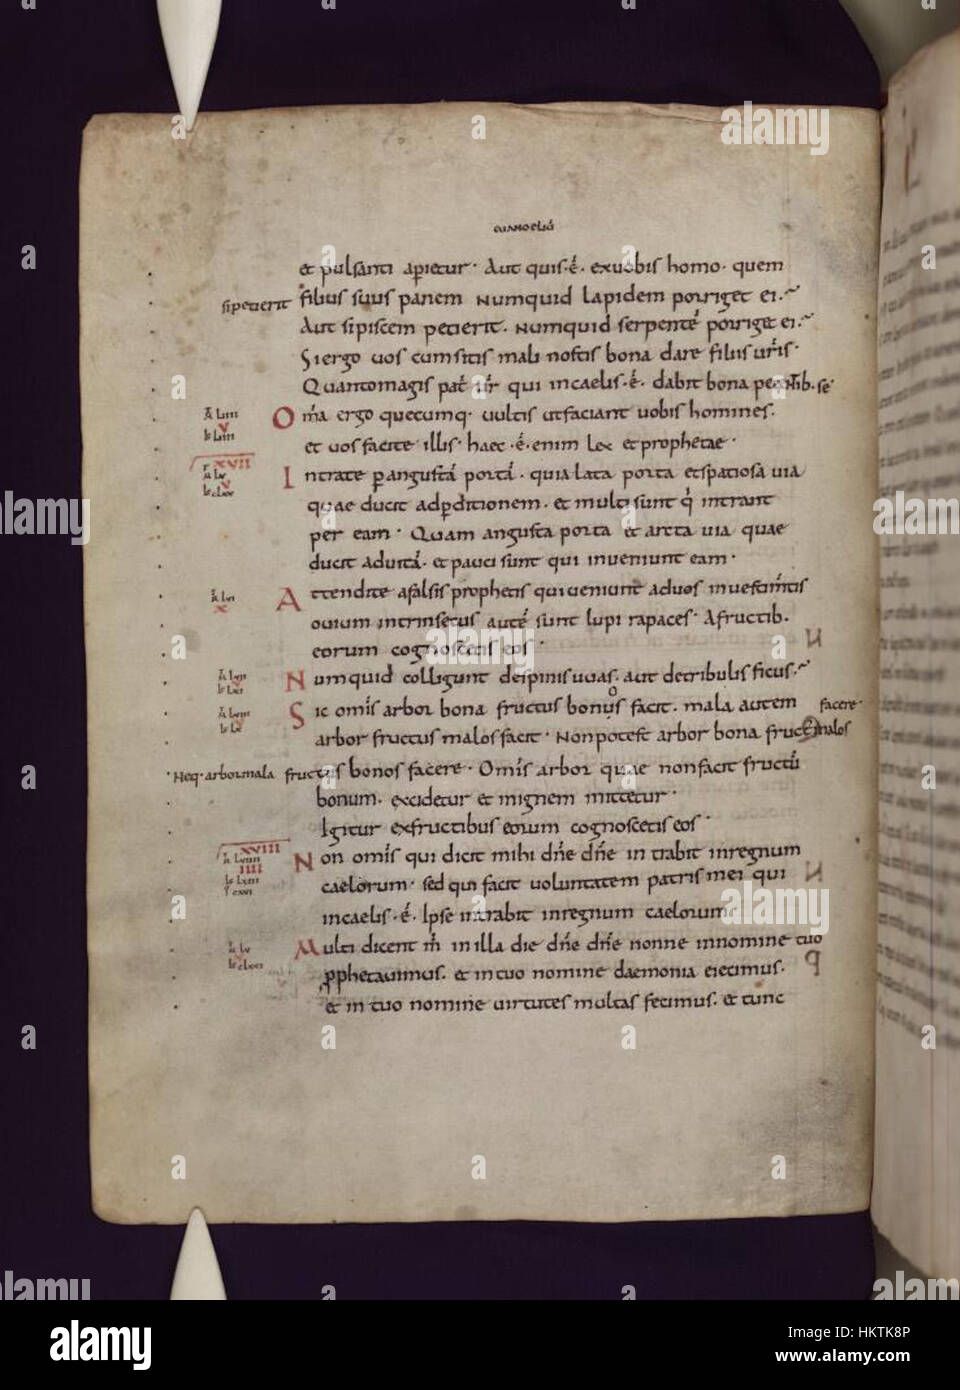 EUANGELIŪ
et pulsanti aperietur· Aut quis·ē· exuobis homo· quem
sipetierit filius suus panem Numquid lapidem porriget ei·
Aut sipiscem petierit· Numquid serpentē porriget ei·
Siergo uos cumsitis mali nostis bona dare filiis uris·
Quantomagis pat ur qui incaelis·ē· dabit bona petentib·se
Omia ergo quecumq· uultis utfaciant uobis homines·
et uos facite illis· haec·ē·enim lex etprophetae·
XVII
Intrate perangustā portā· quia lata porta etspatiosa uia
quae ducit adperditionem· et multi sunt qi intrant
per eam· Quam angusta porta et arcta uia quae
ducit aduitā· et pauci sunt qui inueniunt eam·
Attendite afalsis prophetis quiueniunt aduos
ouium intrinsecus autē sunt lupi rapaces· Afructib·
eorum cognoscetis eos·
Numquid colligunt despinis uuas· aut detribulis ficus·
Sic omis arbor bona fructus bonos facit· mala autem
facere·
arbor fructus malos facit· Nonpotest arbor bona fruct malos
Neq·arbormala fructus bonos facere· Omis arbor quae nonfacit fructū
bonum· excidetur et inignem mittetur·
Igitur exfructibus eorum cognoscetis eos·
XVIII
Non omis qui dicit mihi dne dne intrabit inregnum
caelorum· sed qui facit uoluntatem patris mei qui
incaelis·ē· Ipse intrabit inregnum caelorum
Multi dicent m in illa die dne dne nonne innomine tuo
prophetauimus· et intuo nomine daemonia eiecimus·
et in tuo nomine uirtutes multas fecimus· et tunc
alamy
a
alamy stock photo
HKTK8P
www.alamy.com